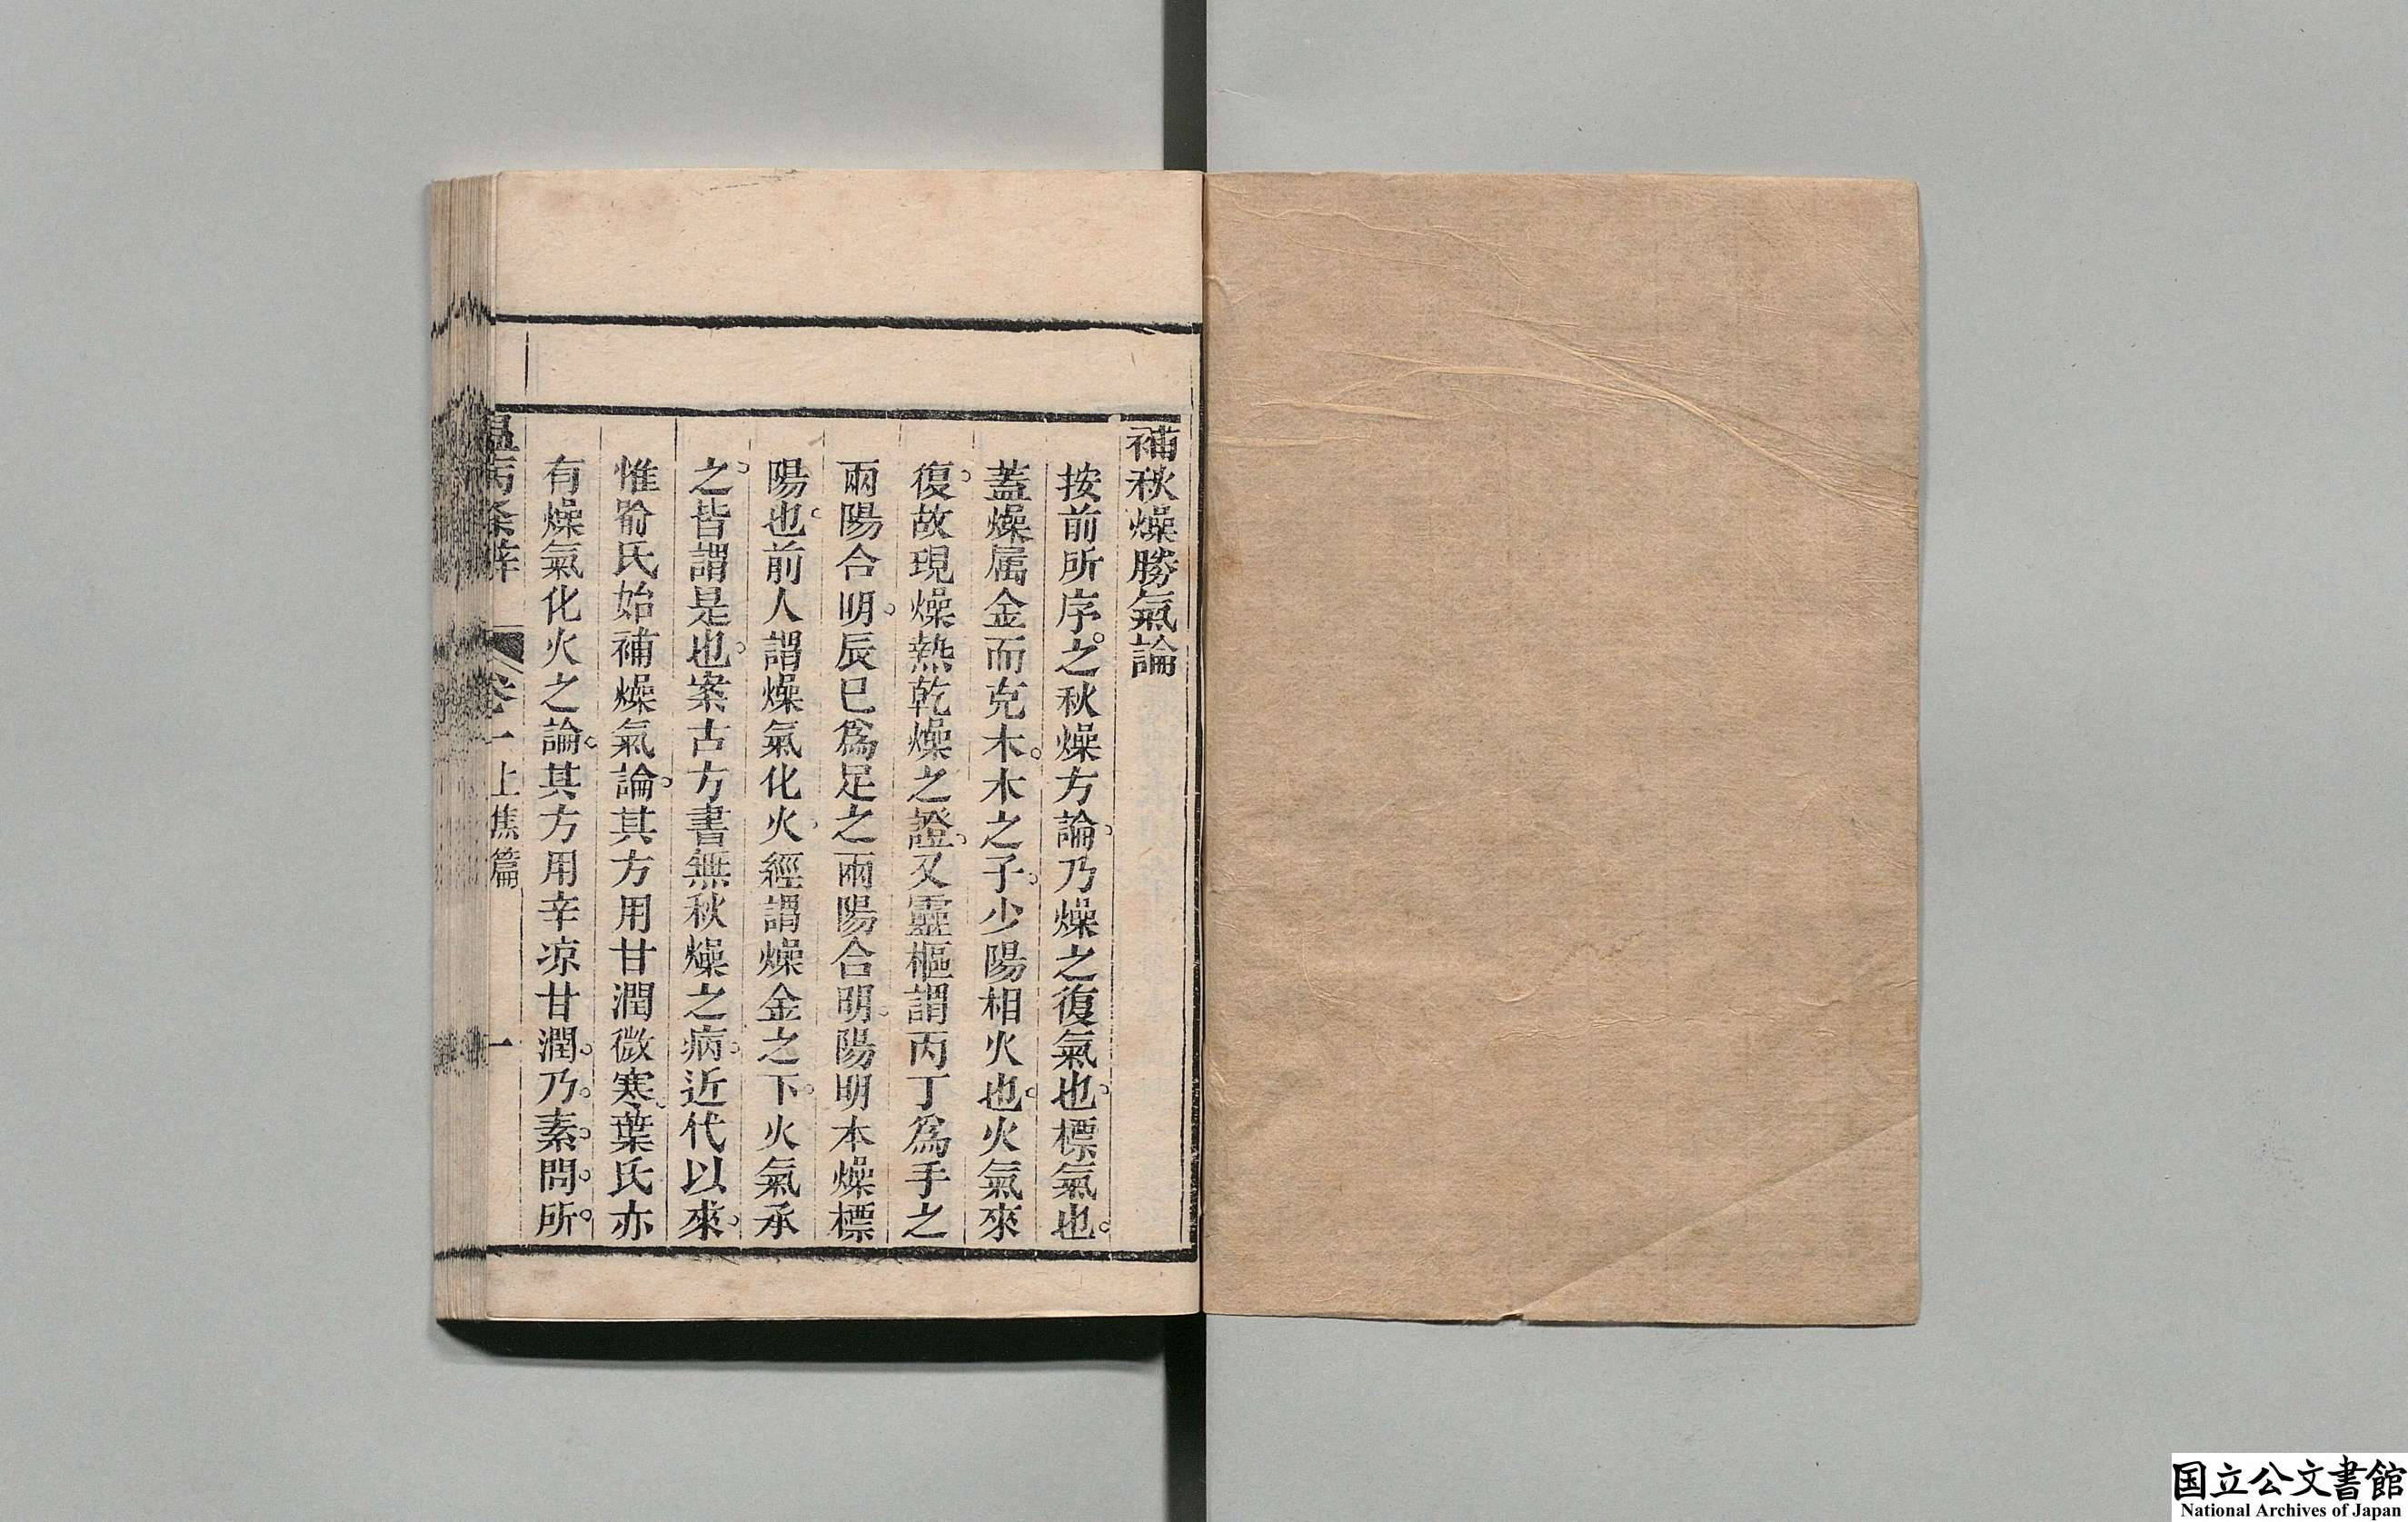 補秋燥勝氣論
按前所序之秋燥方論乃燥之復氣也標氣也
蓋燥属金而克木木之子少陽相火也火氣來
復故現燥熱乾燥之證又靈樞謂丙丁爲手之
兩陽合明辰巳爲足之兩陽合明陽明本燥標
陽也前人謂燥氣化火經謂燥金之下火氣承
之皆謂是也案古方書無秋燥之病近代以來
惟喻氏始補燥氣論其方用甘潤微寒葉氏亦
有燥氣化火之論其方用辛凉甘潤乃素問所
温病条辨 卷一 上焦篇 一
国立公文書館
National Archives of Japan